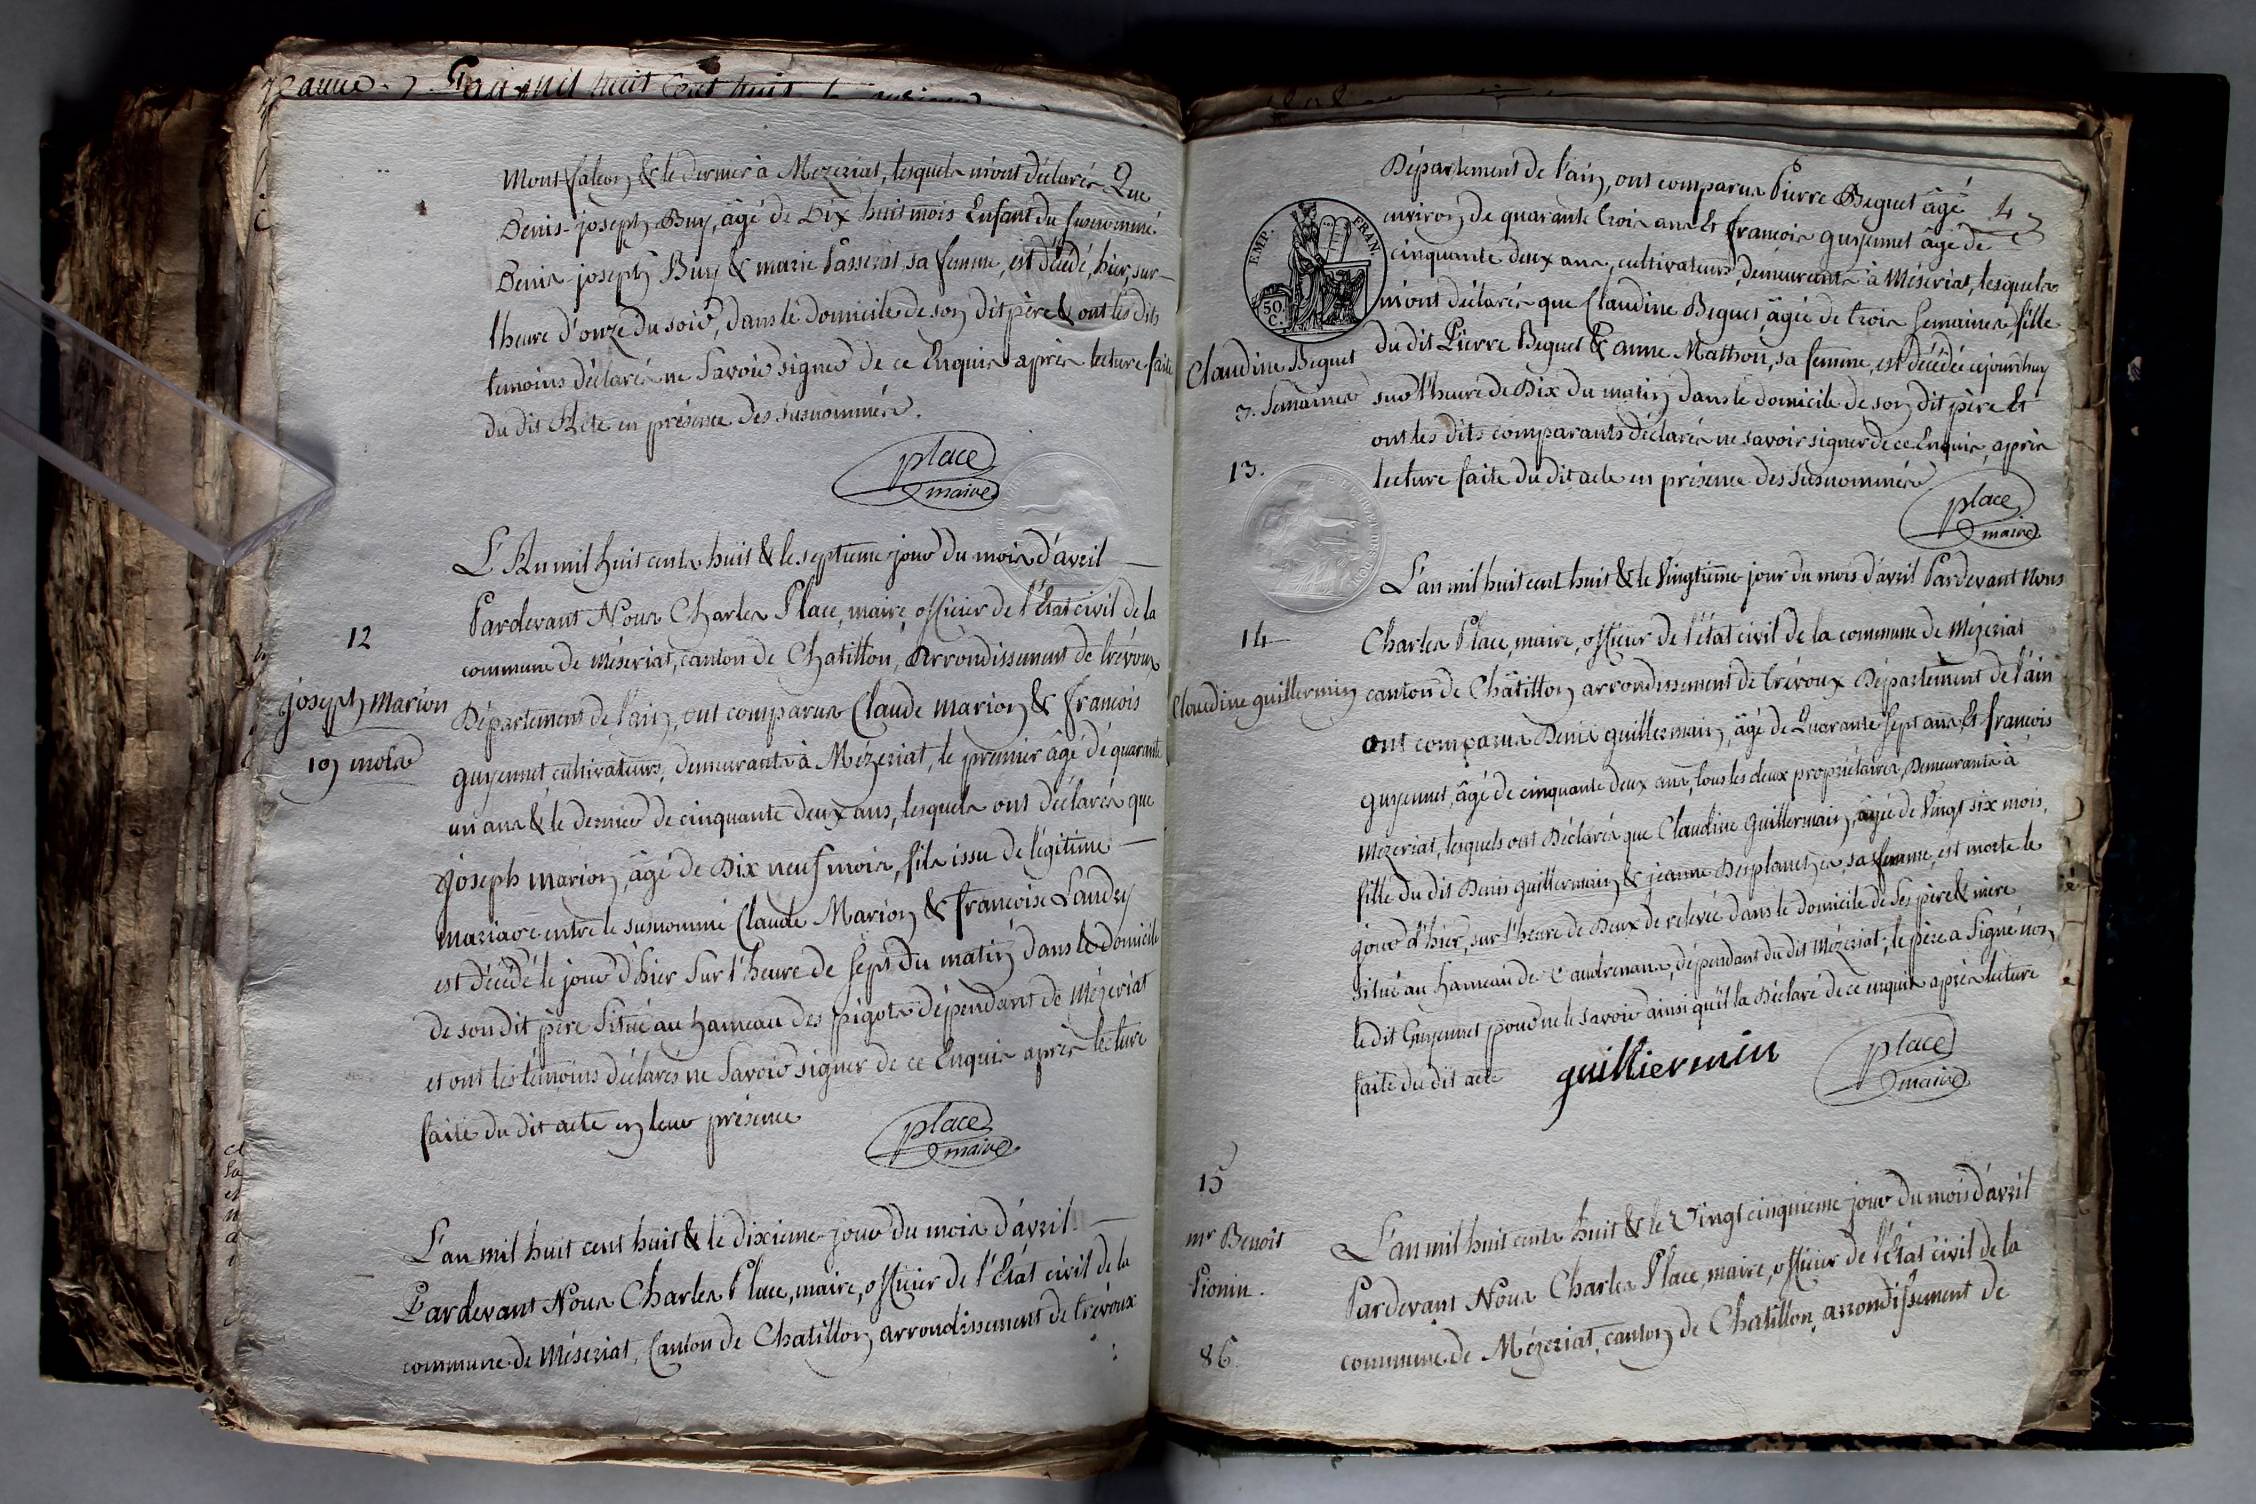 L'an mil huit cent huit
Montfalcon & le dernier à Mezeriat, lesquels m'ont déclarés Que
Denis-joseph Buy, âgé de Dix huit mois Enfant du susnommé
Denis-joseph Buy & marie Passerat, sa femme, est décédé, hier, sur
lheure d'onze du soir, dans le domicile de son dit père & ont les dits
temoins déclarés ne Savoir signer de ce Enquis après lecture faite
du dit Acte en présence des susnommés.
place
maire
L'An mil huit cents huit & le septieme jour du mois d'avril
Pardevant Nous Charles Place, maire, officier de l'Etat civil de la
12
commune de Méseriat, canton de Chatillon, Arrondissement de trévoux
joseph Marion
Département de l'ain, ont comparus Claude Marion & francois
19 mois
guyennet cultivateurs, demeurants à Mézeriat, le premier âgé de quarante
un ans & le dernier de cinquante deux ans, lesquels ont déclarés que
joseph Marion, âgé de Dix neuf mois, fils issu de légitime
mariage entre le susnommé Claude Marion & francoise Landry
est décédé le jour d'hier sur l'heure de sept du matin dans le domicile
de son dit père situé au hameau des pigots dépendant de Mézeriat
et ont les témoins déclarés ne Savoir signer de ce Enquis après lecture
faite du dit acte en leur présence
place
maire
L'an mil huit cent huit & le dixieme jour du mois d'avril
Pardevant Nous Charles Place, maire, officier de l'Etat civil de la
commune de Méseriat, Canton de Chatillon arrondissement de trévoux
Département de l'ain, ont comparus Pierre Beguet âgé
4
EMP. FRAN.
50. C.
environ de quarante trois ans Et francois guyennet âgé de
cinquante deux ans, cultivateurs, demeurants à Méseriat, lesquels
m'ont déclarés que Claudine Beguet, âgée de trois semaines, fille
Claudine Beguet
du dit Pierre Beguet & anne Mathon, sa femme, est décédée cejourdhuy
3. Semaines
sur l'heure de Dix du matin dans le domicile de son dit père Et
ont les dits comparants déclarés ne savoir signer de ce Enquis, après
13.
lecture faite du dit acte en présence des susnommés
place
maire
L'an mil huit cent huit & le Vingtième jour du mois d'avril Pardevant Nous
14
Charles Place, maire, officier de l'état civil de la commune de Mézeriat
Claudine guillermin
canton de Châtillon arrondissement de trévoux Département de l'ain
ont comparus Denis guillermain, âgé de Quarante sept ans, Et francois
guyennet, âgé de cinquante deux ans, tous les deux propriétaires, Demeurants à
Mézeriat, lesquels ont Déclarés que Claudine guillermain, âgée de Vingt six mois,
fille du dit Denis guillermain & jeanne Desplanches, sa femme, est morte le
jour d'hier, sur l'heure de Deux de relevée dans le domicile de ses père & mère
situé au hameau de dépendant du dit Mézeriat; le père a Signé non
le dit Guyennet pour ne le savoir ainsi qu'il la Déclaré de ce enquis après lecture
faite du dit acte
guilliermin
place
maire
15
mr Benoit
Pionin.
86.
L'an mil huit cents huit & le Vingt cinquieme jour du mois d'avril
Pardevant Nous Charles Place, maire, officier de l'Etat civil de la
commune de Mézeriat, canton de Chatillon, arrondissement de